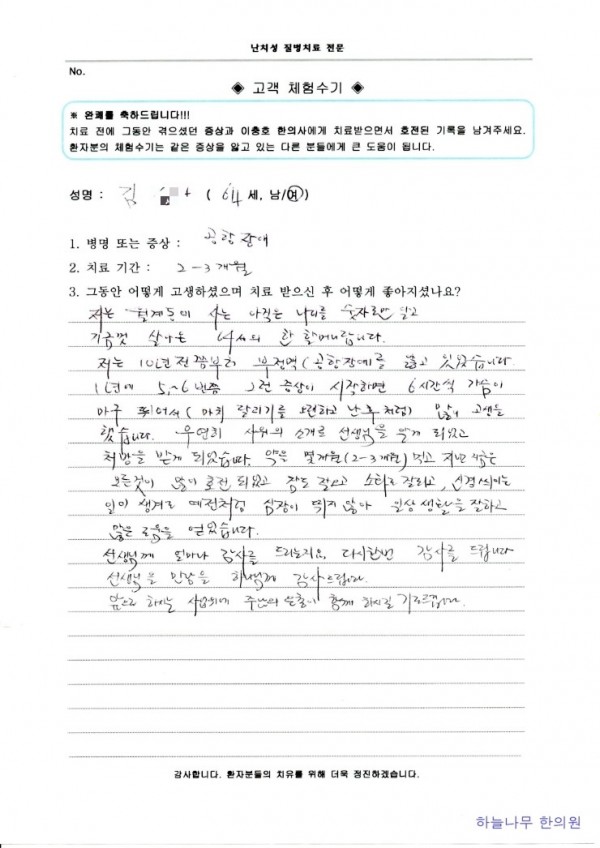 난치성 질병치료 전문
No.
◈ 고객 체험수기 ◈
※ 완쾌를 축하드립니다!!!
치료 전에 그동안 겪으셨던 증상과 이충호 한의사에게 치료받으면서 호전된 기록을 남겨주세요.
환자분의 체험수기는 같은 증상을 앓고 있는 다른 분들에게 큰 도움이 됩니다.
성명 : 김 ( 64 세, 남/여)
1. 병명 또는 증상 : 공항장애
2. 치료 기간 : 2-3개월
3. 그동안 어떻게 고생하셨으며 치료 받으신 후 어떻게 좋아지셨나요?
저는 사는 아직는 나이를 숫자로만 알고
지금껏 살아온 64세의 한 할머니랍니다.
저는 10년전쯤부터 부정맥(공항장애를 앓고 있었습니다.
1년에 5,~6번쯤 그런 증상이 시작하면 6시간씩 가슴이
마구 뛰어서(마치 달리기를 오련하고 난 후처럼) 많이 고생을
했습니다. 우연히 사위의 소개로 선생님을 뵙게 되었고
처방을 받게 되었습니다. 약은 몇개월(2-3개월) 먹고 지난 지금은
모든것이 많이 호전 되었고 잠도 잘오고 소화도 잘되고, 신경쓰이는
일이 생겨도 예전처럼 심장이 뛰지 않아 일상 생활을 잘하고
많은 도움을 얻었습니다.
선생님께 얼마나 감사를 드리는지요, 다시한번 감사를 드립니다
선생님을 만남을 하나님께 감사드립니다.
앞으로 하시는 사업위에 주님의 은총이 함께 하시길 기도드립니다.
감사합니다. 환자분들의 치유를 위해 더욱 정진하겠습니다.
하늘나무 한의원